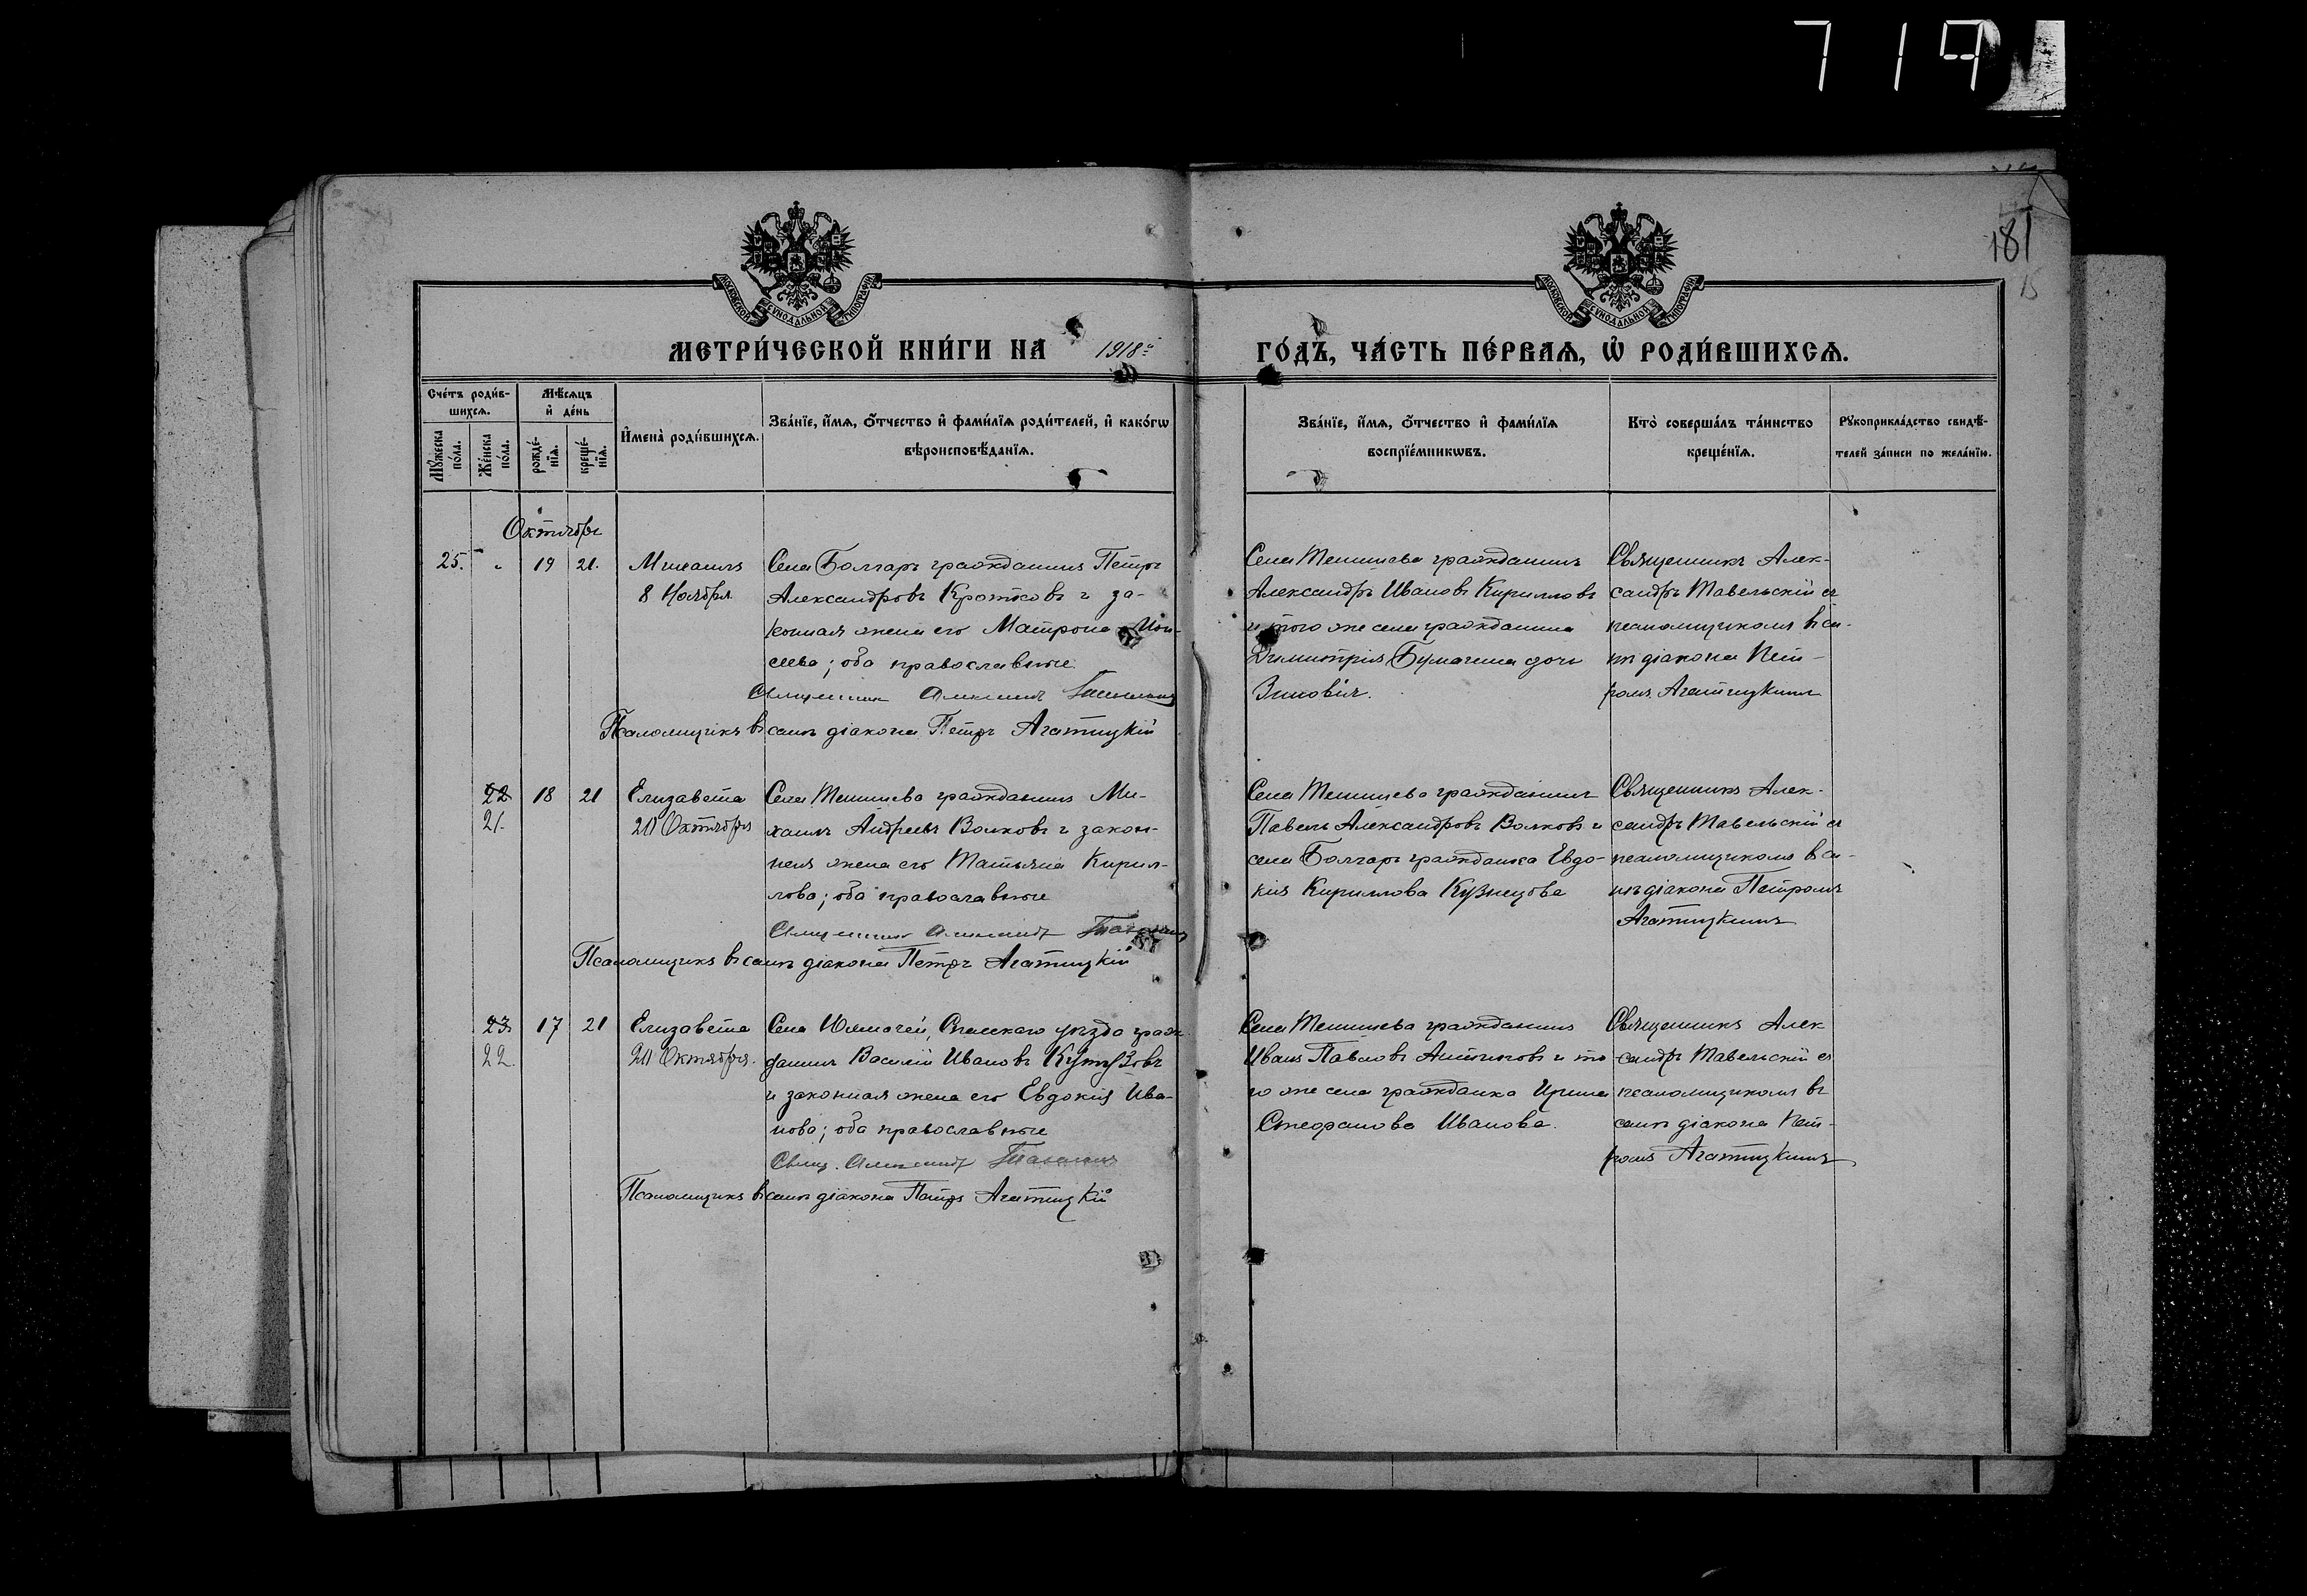 719
181
15
МОСКОВСКОЙ СѴНОДАЛЬНОЙ ТИПОГРАФІИ
МОСКОВСКОЙ СѴНОДАЛЬНОЙ ТИПОГРАФІИ
МЕТРИ́ЧЕСКОЙ КНИ́ГИ НА 1918 ГО́ДЪ, ЧА́СТЬ ПЕ́РВАѦ, Ѡ҆ РОДИ́ВШИХСѦ.
Сче́тъ роди́в-
шихсѧ.
Мѣ́сѧцъ
и҆ де́нь
Мꙋ́жеска
по́ла.
Же́нска
по́ла.
рожде́-
нїѧ.
креще́-
нїѧ.
И҆мена̀ роди́вшихсѧ.
Зва́нїе, и҆́мѧ, о҆́тчество и҆ фами́лїѧ роди́телей, и҆ како́гѡ
вѣроисповѣ́данїѧ.
Зва́нїе, и҆́мѧ, о҆́тчество и҆ фами́лїѧ
воспрїе́мникѡвъ.
Кто̀ соверша́лъ та́инство
креще́нїѧ.
Рꙋкоприкла́дство свидѣ́-
телей за́писи по жела́нїю.
Октябрь
25. " 19 21.
Михаилъ
8 Ноября
Села Болгаръ гражданинъ Петръ
Александровъ Кротковъ и за-
конная жена его Матрона
сеева; оба православные
Священник Александръ Тавельскій
Псаломщикъ въ санѣ діакона Петръ Агатицкій
Села гражданинъ
Александръ Ивановъ Кирилловъ
и того же села гражданина
Димитрія Бумагина дочь
Зиновія.
Священникъ Алек-
сандръ Тавельскій съ
псаломщикомъ въ са-
нѣ діакона Пет-
ромъ Агатицкимъ
22 18 21
21.
Елизавета
20 Октября
Села гражданинъ Ми-
хаилъ Андреевъ Волковъ и закон-
ная жена его Татьяна Кирил-
лова; оба православные
Священник Александръ Тавельскій
Псаломщикъ въ санѣ діакона Петръ Агатицкій
Села гражданинъ
Павелъ Александровъ Волковъ и
села Болгаръ гражданка Евдо-
кія Кириллова Кузнецова
Священникъ Алек-
сандръ Тавельскій съ
псаломщикомъ въ са-
нѣ діакона Петромъ
Агатицкимъ
23 17 21
22.
Елизавета
20 Октября.
Села Спасскаго уѣзда граж-
данинъ Василій Ивановъ Кутузовъ
и законная жена его Евдокія Ива-
нова; оба православные
Свящ. Александръ Тавельскій
Псаломщикъ въ санѣ діакона Петръ Агатицкій
Села гражданинъ
Иванъ Павловъ и то-
го же села гражданка Ирина
Стефанова Иванова.
Священникъ Алек
сандръ Тавельскій съ
псаломщикомъ въ
санѣ діакона Пет-
ромъ Агатицкимъ